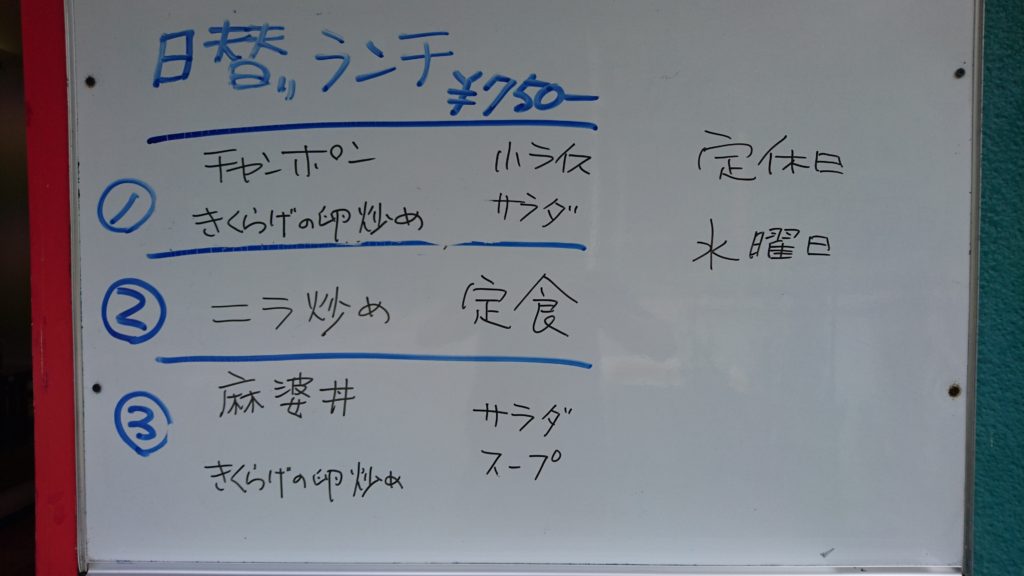 日替りランチ
¥750ー
① チャンポン 小ライス
きくらげの卵炒め サラダ
② ニラ炒め 定食
③ 麻婆丼 サラダ
きくらげの卵炒め スープ
定休日
水曜日